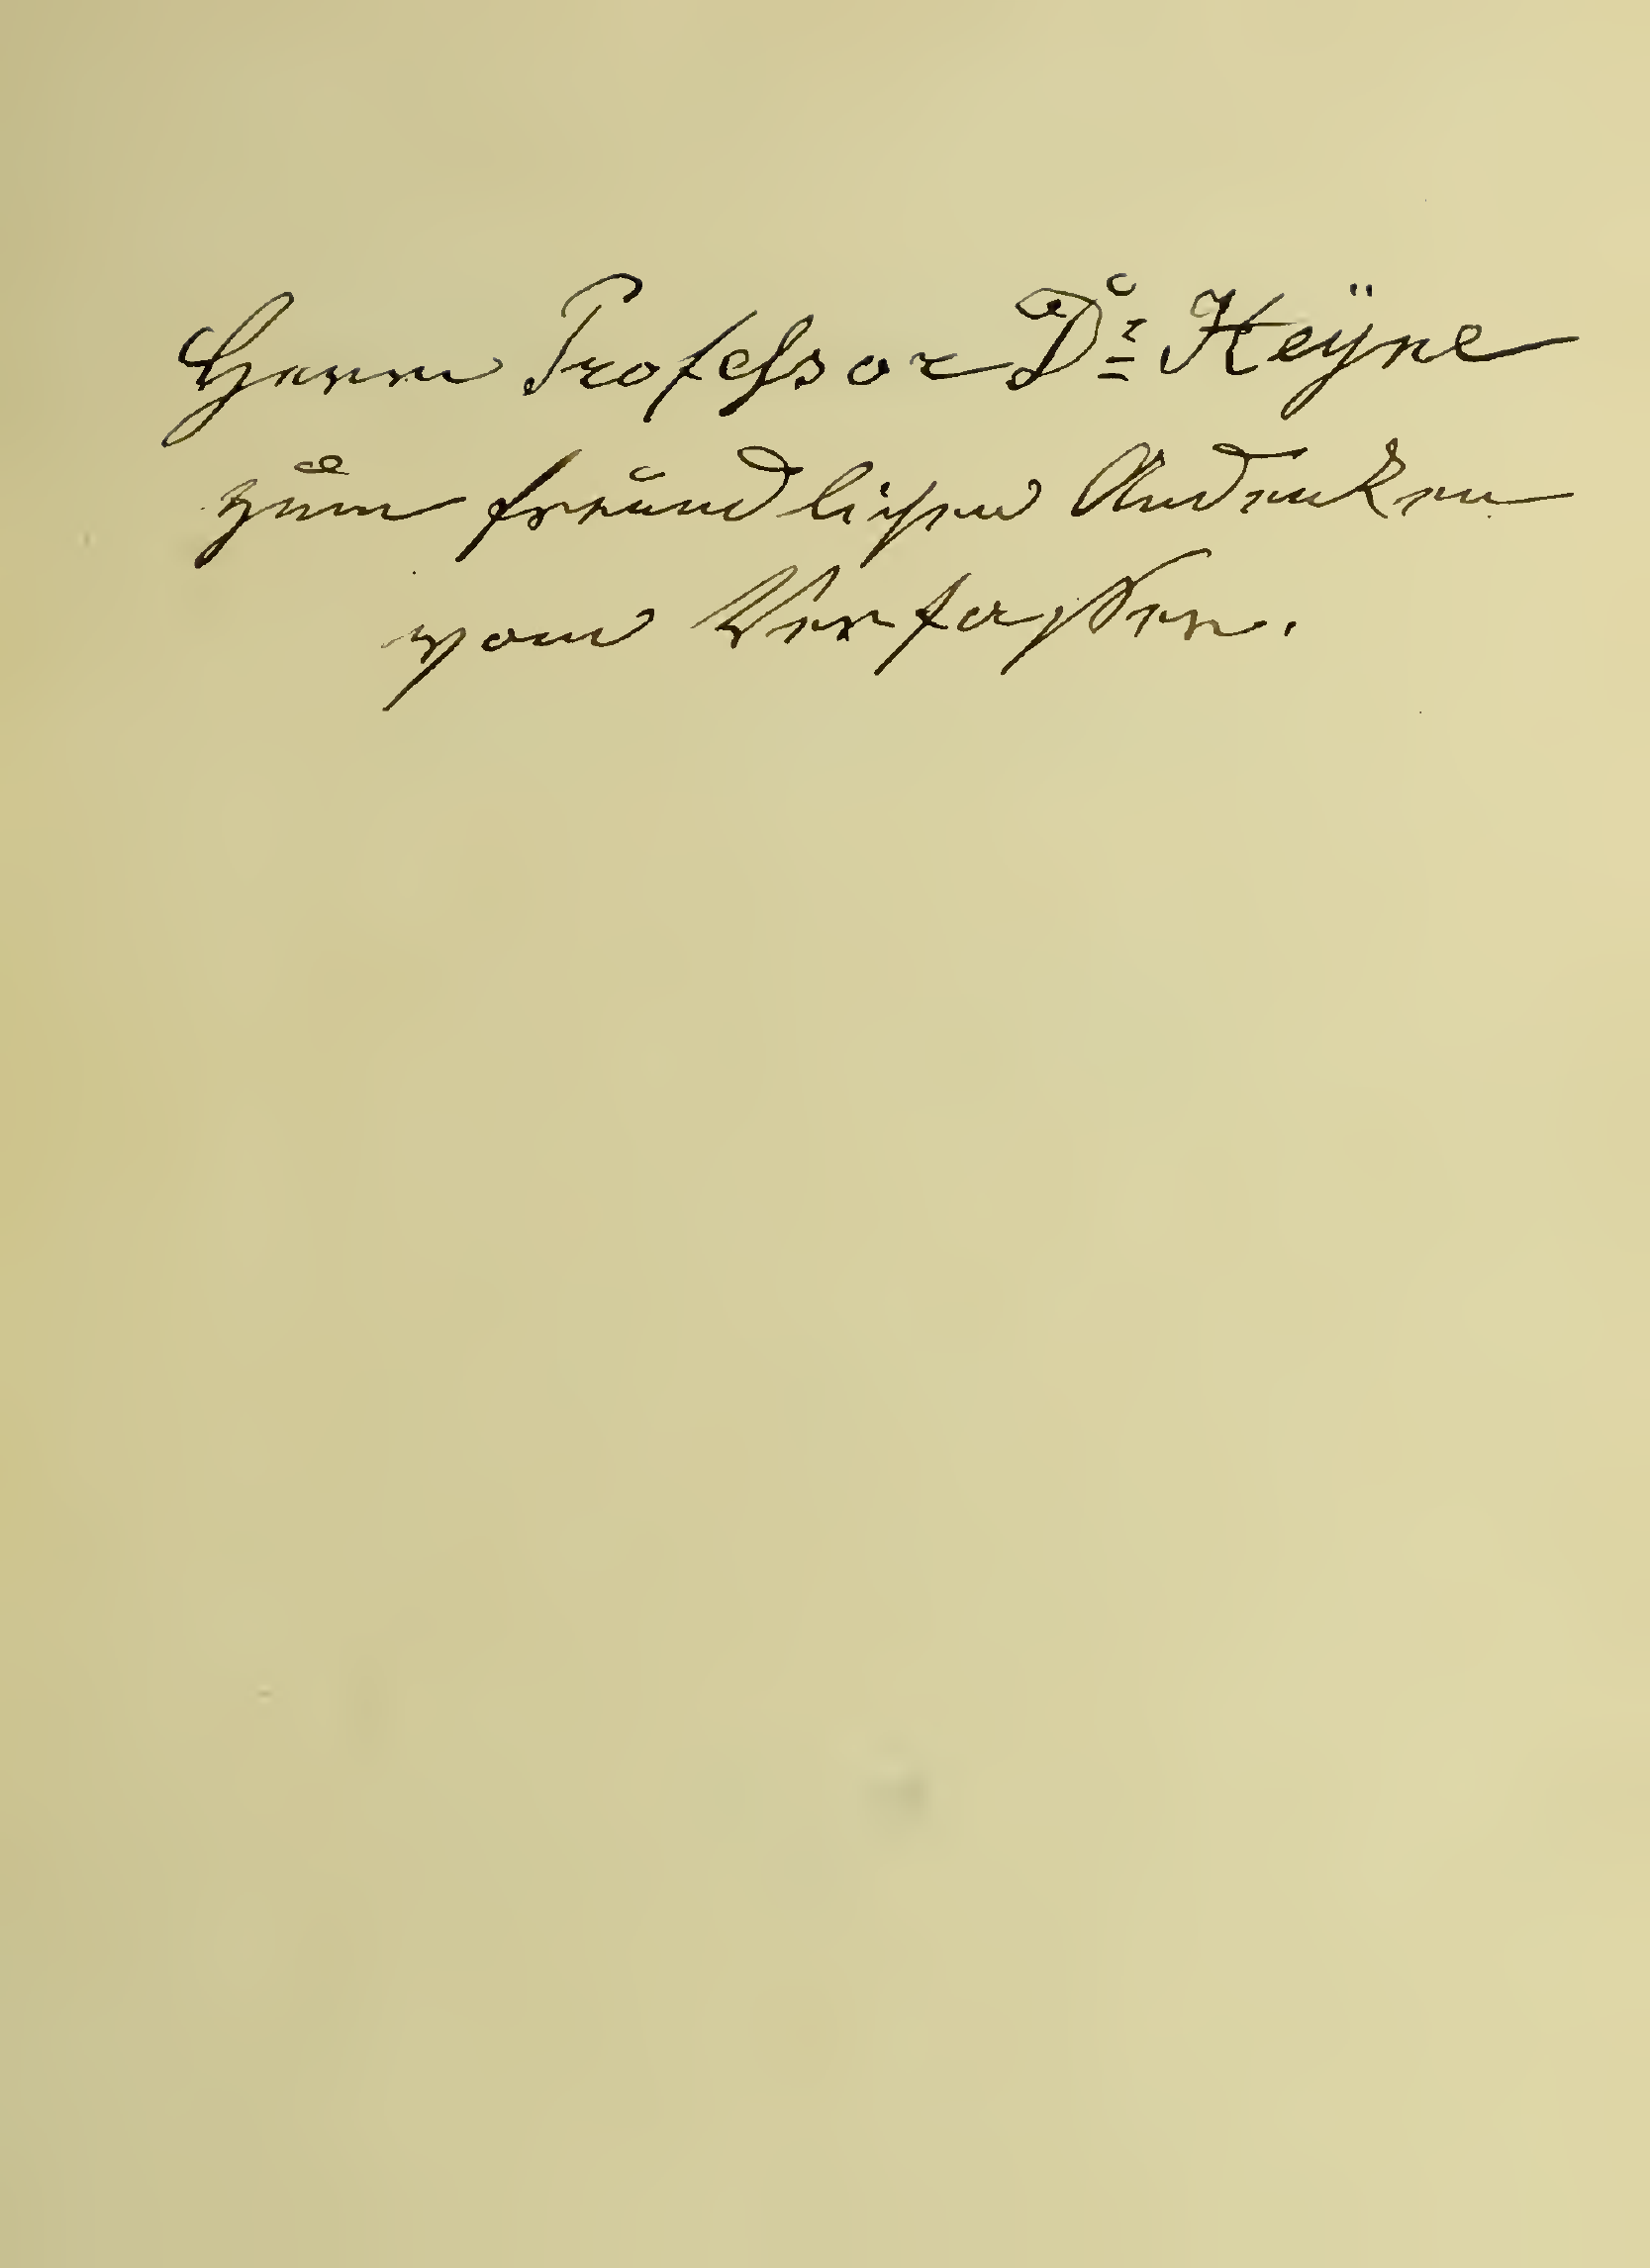 Herrn Professor Dr. Heÿne
zum freundlichen Andenken
vom Verfasser.